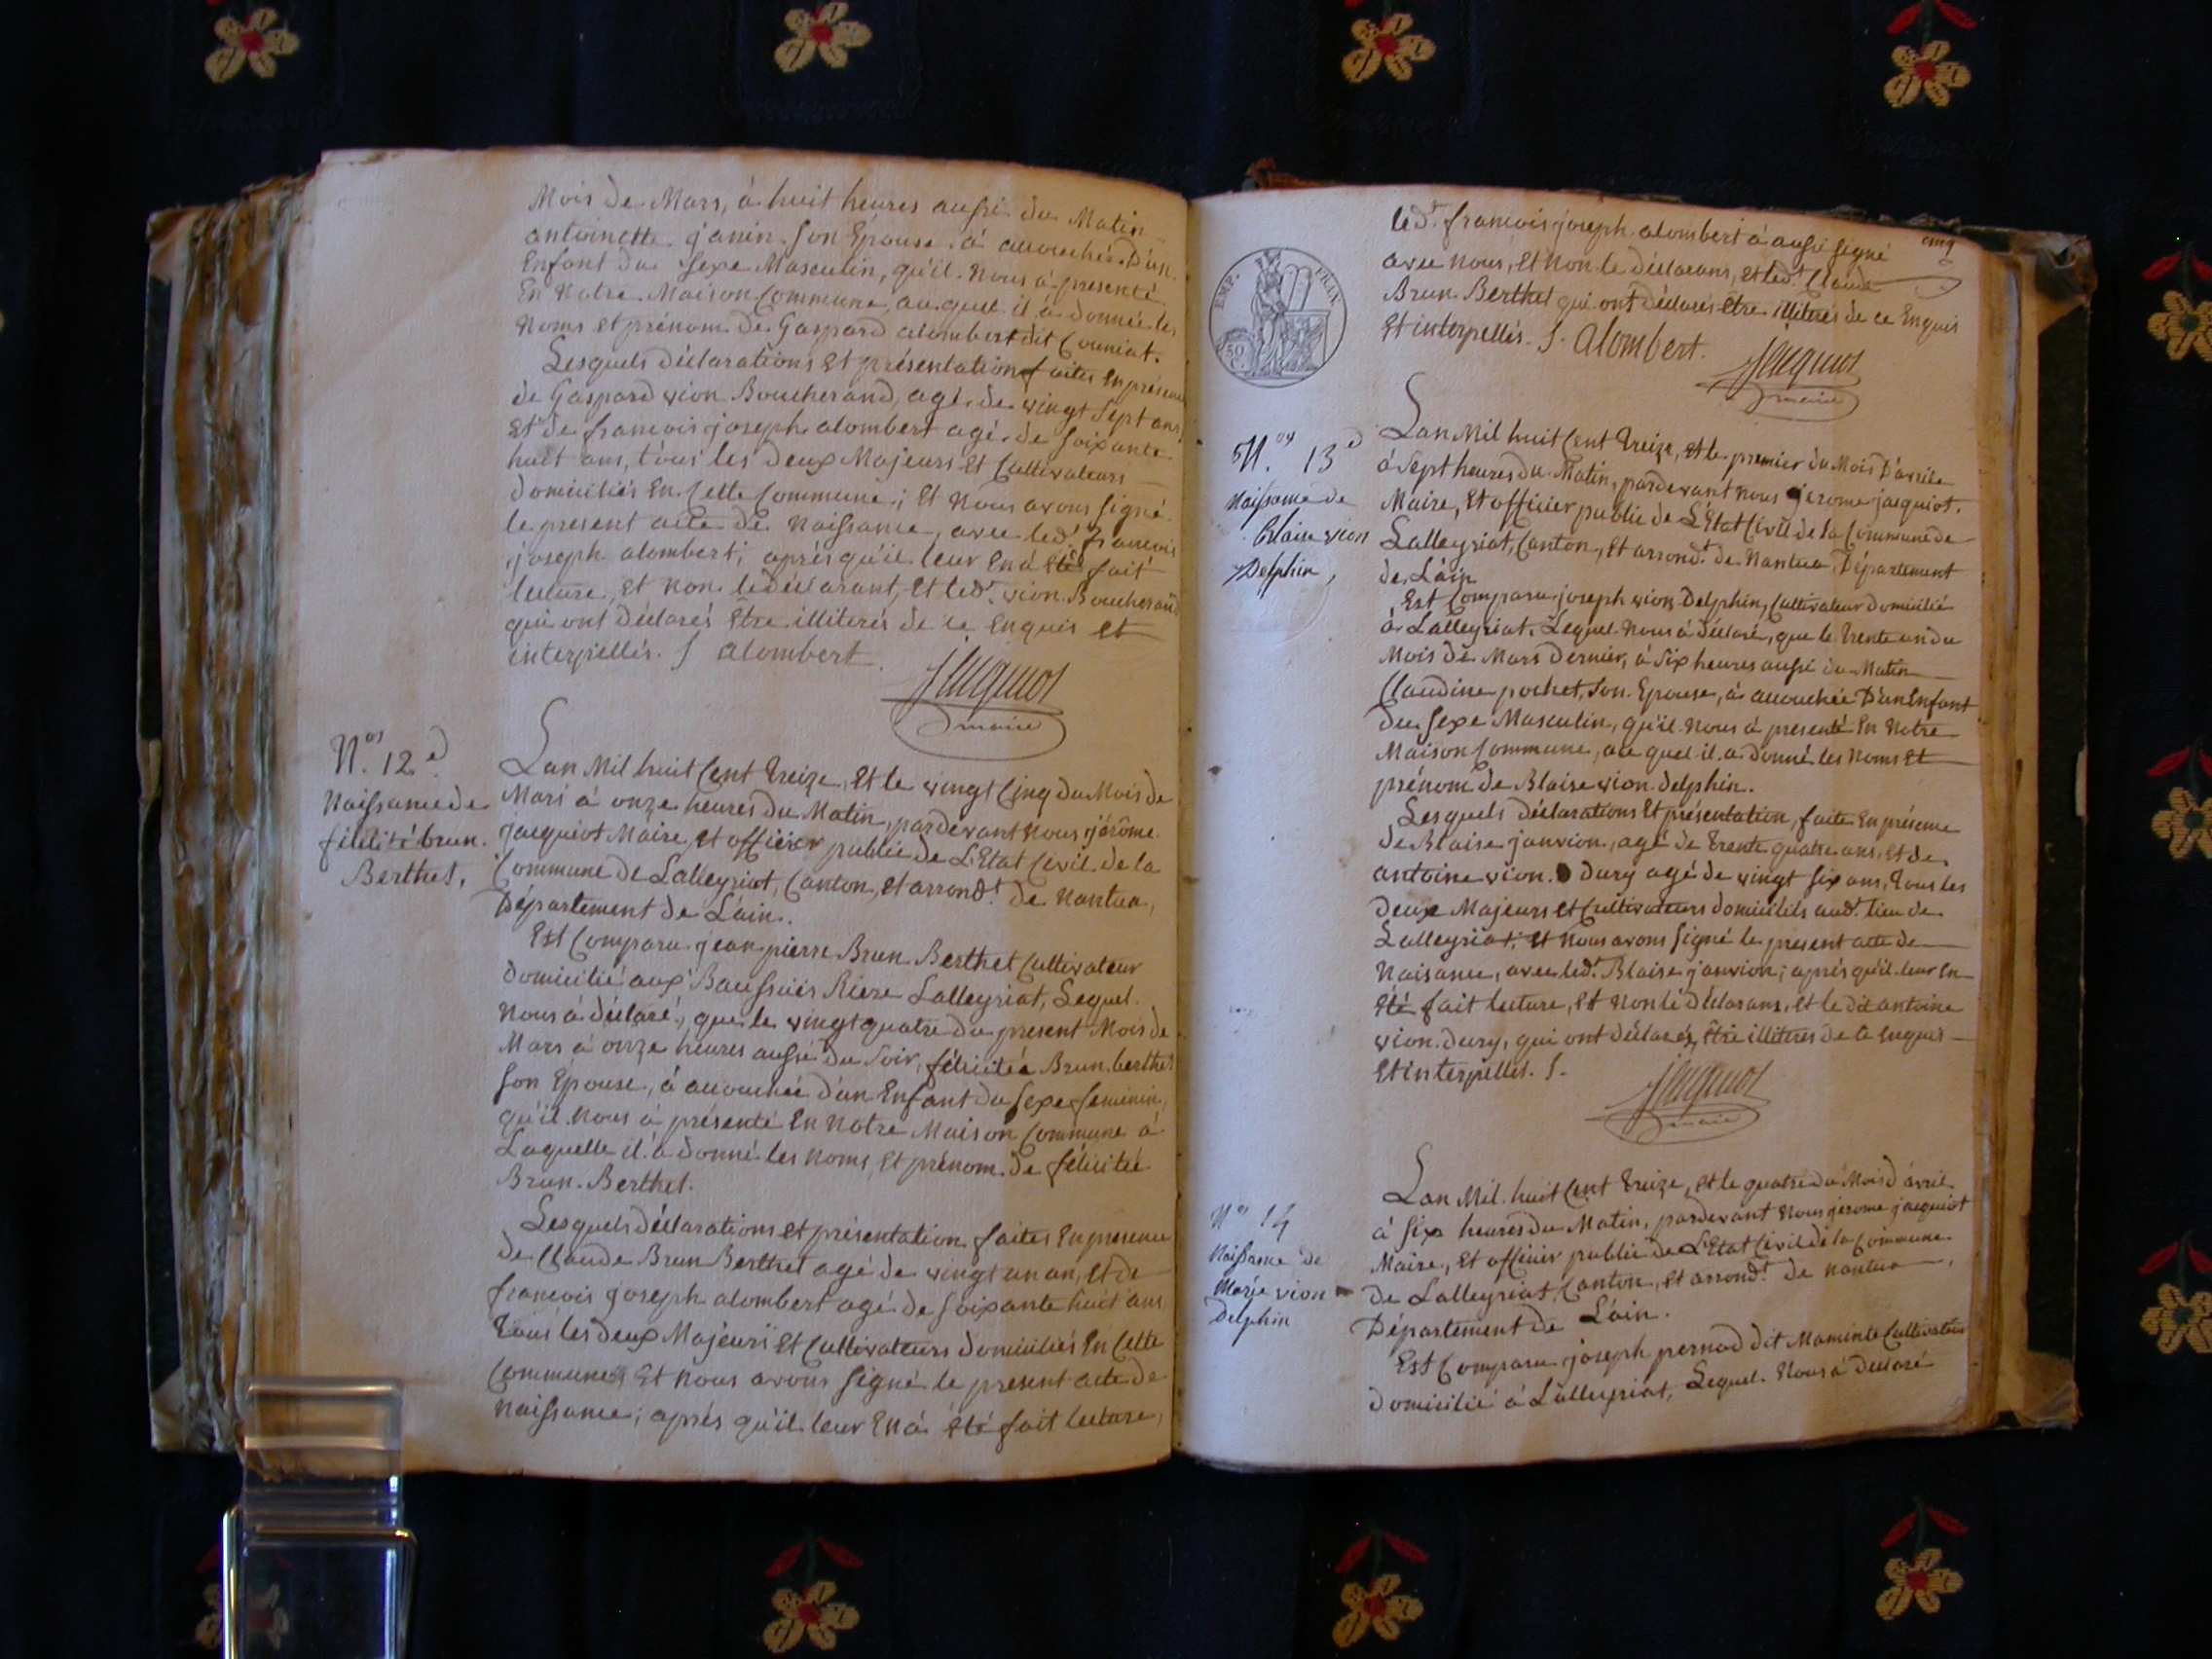 Mois de Mars, à huit heures aussi du Matin
antoinette janin son Epouse, à accouchée D'un
Enfant du sexe Masculin, qu'il nous à présenté
En Notre Maison Commune, au quel il à donnée les
Noms et prénom de Gaspard alombert dit Couniat.
Lesquels déclarations et présentation faites En présence
de Gaspard vion Boucherand, agé de vingt sept ans
et de francois joseph alombert agé de soixante
huit ans, tous les deux Majeurs et Cultivateurs
domiciliés En Cette Commune; Et nous avons signé
le present acte de naissance, avec led.t francois
joseph alombert; aprés qu'il leur En à Eté fait
lecture, et non le déclarant, et led.t vion Boucherand
qui ont déclarés Etre illiterés de ce Enquis et
interpellés. J alombert. Jacquiot
maire
N.os 12.e
Naissance de
félicité brun
Berthet.
Lan Mil huit Cent treize, Et le vingt Cinq du Mois de
Mars à onze heures du Matin, pardevant nous jérôme
jacquiot Maire, et officier public de L'Etat Civil de la
Commune de Lalleyriat, Canton, et arrond.t de Nantua,
Département de L'ain.
Est Comparu jean pierre Brun Berthet Cultivateur
domicilié aux Baussuis Riere Lalleyriat, Lequel
nous à déclaré, que le vingt quatre du present Mois de
Mars à onze heures aussi du Soir, félicitée Brun berthet
son Epouse, à accouchée d'un Enfant du sexe feminin,
qu'il nous à présenté En Notre Maison Commune à
Laquelle il à donné les noms, et prénom de félicitée
Brun Berthet.
Lesquels déclarations et présentation faites En présence
de Claude Brun Berthet agé de vingt un an, et de
francois joseph alombert agé de soixante huit ans
Tous les deux Majeurs et Cultivateurs domiciliés En Cette
Commune Et nous avons signé le present acte de
naissance; aprés qu'il leur En à été fait lecture,
cinq
led.t francois joseph alombert à aussi signé
avec nous, Et non le déclarans, et led.t Claude
Brun Berthet qui ont déclarés Etre illiterés de ce Enquis
Et interpellés. J. alombert. Jacquiot
maire
EMP. FRAN.
50
C.
N.os 13.e
Naissance de
Blaise vion
Delphin,
Lan Mil huit Cent treize, et le premier du Mois D'avrile
à Sept heures du Matin, pardevant nous jerome jacquiot
Maire, Et officier public de L'Etat Civil de la Commune de
Lalleyriat, Canton, Et arrond.t de Nantua, Département
de L'ain
Est Comparu joseph vion Delphin, Cultivateur domicilié
à Lalleyriat, Lequel nous à déclaré, que le trente un du
Mois de Mars dernier, à Six heures aussi du Matin
Claudine pochet, son Epouse, à accouchée D'un Enfant
du sexe Masculin, qu'il nous à presenté En Notre
Maison Commune, au quel il a donné les Noms Et
prénom de Blaise vion delphin.
Lesquels déclarations Et présentation, faite En présence
de Blaise janvion, agé de trente quatre ans, Et de
antoine vion Dury agé de vingt Six ans, tous les
deux Majeurs et Cultivateurs domiciliés aud.t lieu de
Lalleyriat. Et nous avons signé le present acte de
Naisance, avec led.t Blaise janvion; aprés qu'il leur En
Eté fait lecture, et non le déclarans, Et le dit antoine
vion Dury, qui ont déclarés, Être illiterés de ce Enquis
Et interpellés. J. Jacquiot
maire
N.os 14
Naissance de
Marie vion
Delphin
Lan Mil huit Cent treize, et le quatre du Mois d'avril
à Six heures du Matin, pardevant nous jerome jacquiot
Maire, Et officier public de L'Etat Civil de la Commune
de Lalleyriat, Canton, Et arrond.t de nantua,
Département de L'ain.
Est Comparu joseph pernod dit Maminte Cultivateur
domicilié à Lalleyriat, Lequel nous à declaré